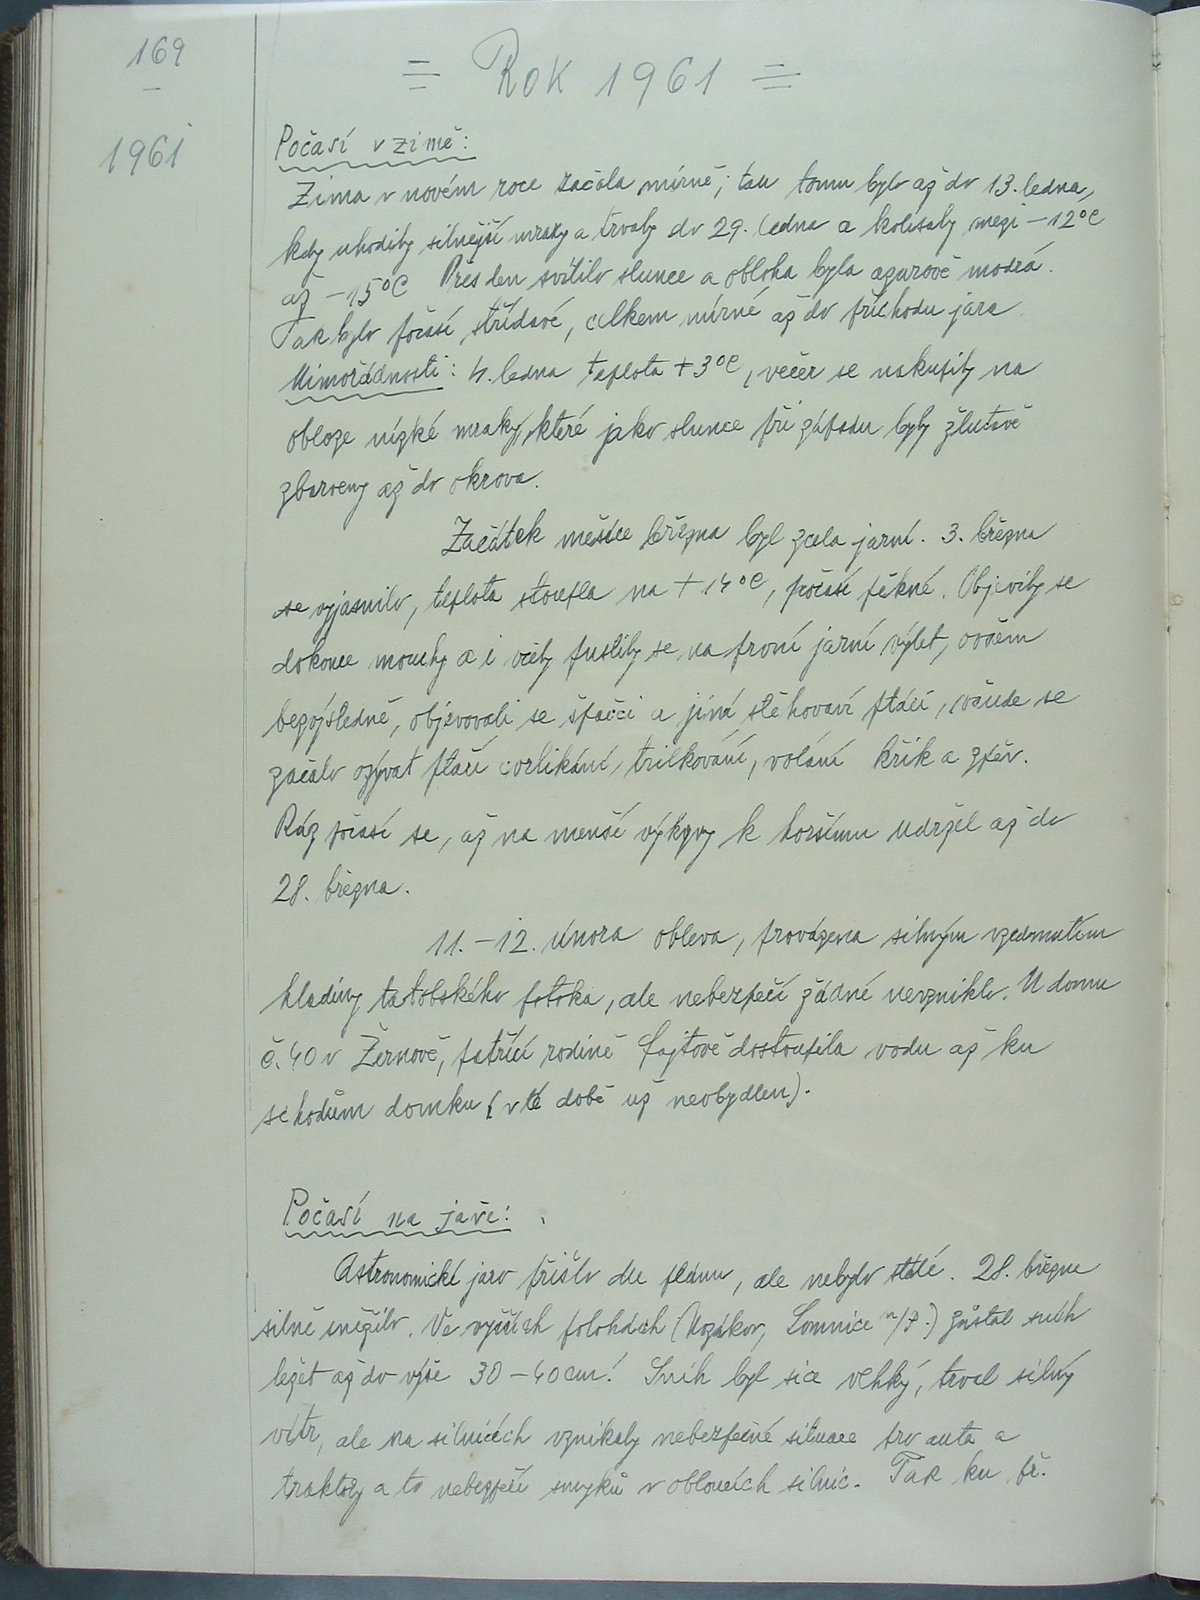 169
—
1961
= Rok 1961 =
Počasí v zimě:
Zima v novém roce začala mírně, tak tomu bylo až do 13. ledna,
kdy uhodily silnější mrazy a trvaly do 29. ledna a kolísaly mezi -12°C
až -15°C Přes den svítilo slunce a obloha byla azurově modrá.
Tak bylo počasí střídavé, celkem mírné až do příchodu jara.
Mimořádnosti: 4. ledna teplota +3°C, večer se nakupily na
obloze nízké mraky, které jako slunce při západu byly žlutavě
zbarveny až do okrova.
Začátek měsíce března byl zcela jarní. 3. března
se vyjasnilo, teplota stoupla na +14°C, počasí pěkné. Objevily se
dokonce mouchy a i včely pustily se na první jarní výlet, ovšem
bezvýsledně, objevovali se špačci a jiná stěhovaví ptáci, všude se
začalo ozývat ptačí cvrlikání, trilkování, volání křik a zpěv.
Ráz počasí se, až na menší výkyvy k horšímu udržel až do
28. března.
11. - 12. února obleva, provázena silným vzedmutím
hladiny tatobského potoka, ale nebezpečí žádné nevzniklo. U domu
č. 40 v Žernově, patřící rodině Fajtově dostoupila vodu až ku
schodům domku (v té době už neobydlen).
Počasí na jaře:
Astronomické jaro přišlo dle plánu, ale nebylo stálé. 28. března
silně sněžilo. Ve vyšších polohách (Kozákov, Lomnice n/P.) zůstal sníh
ležet až do výše 30 - 40 cm! Sníh byl sice vlhký, trval silný
vítr, ale na silnicích vznikaly nebezpečné situace pro auta a
traktory a to nebezpečí smyků v obloucích silnic. Tak ku př.